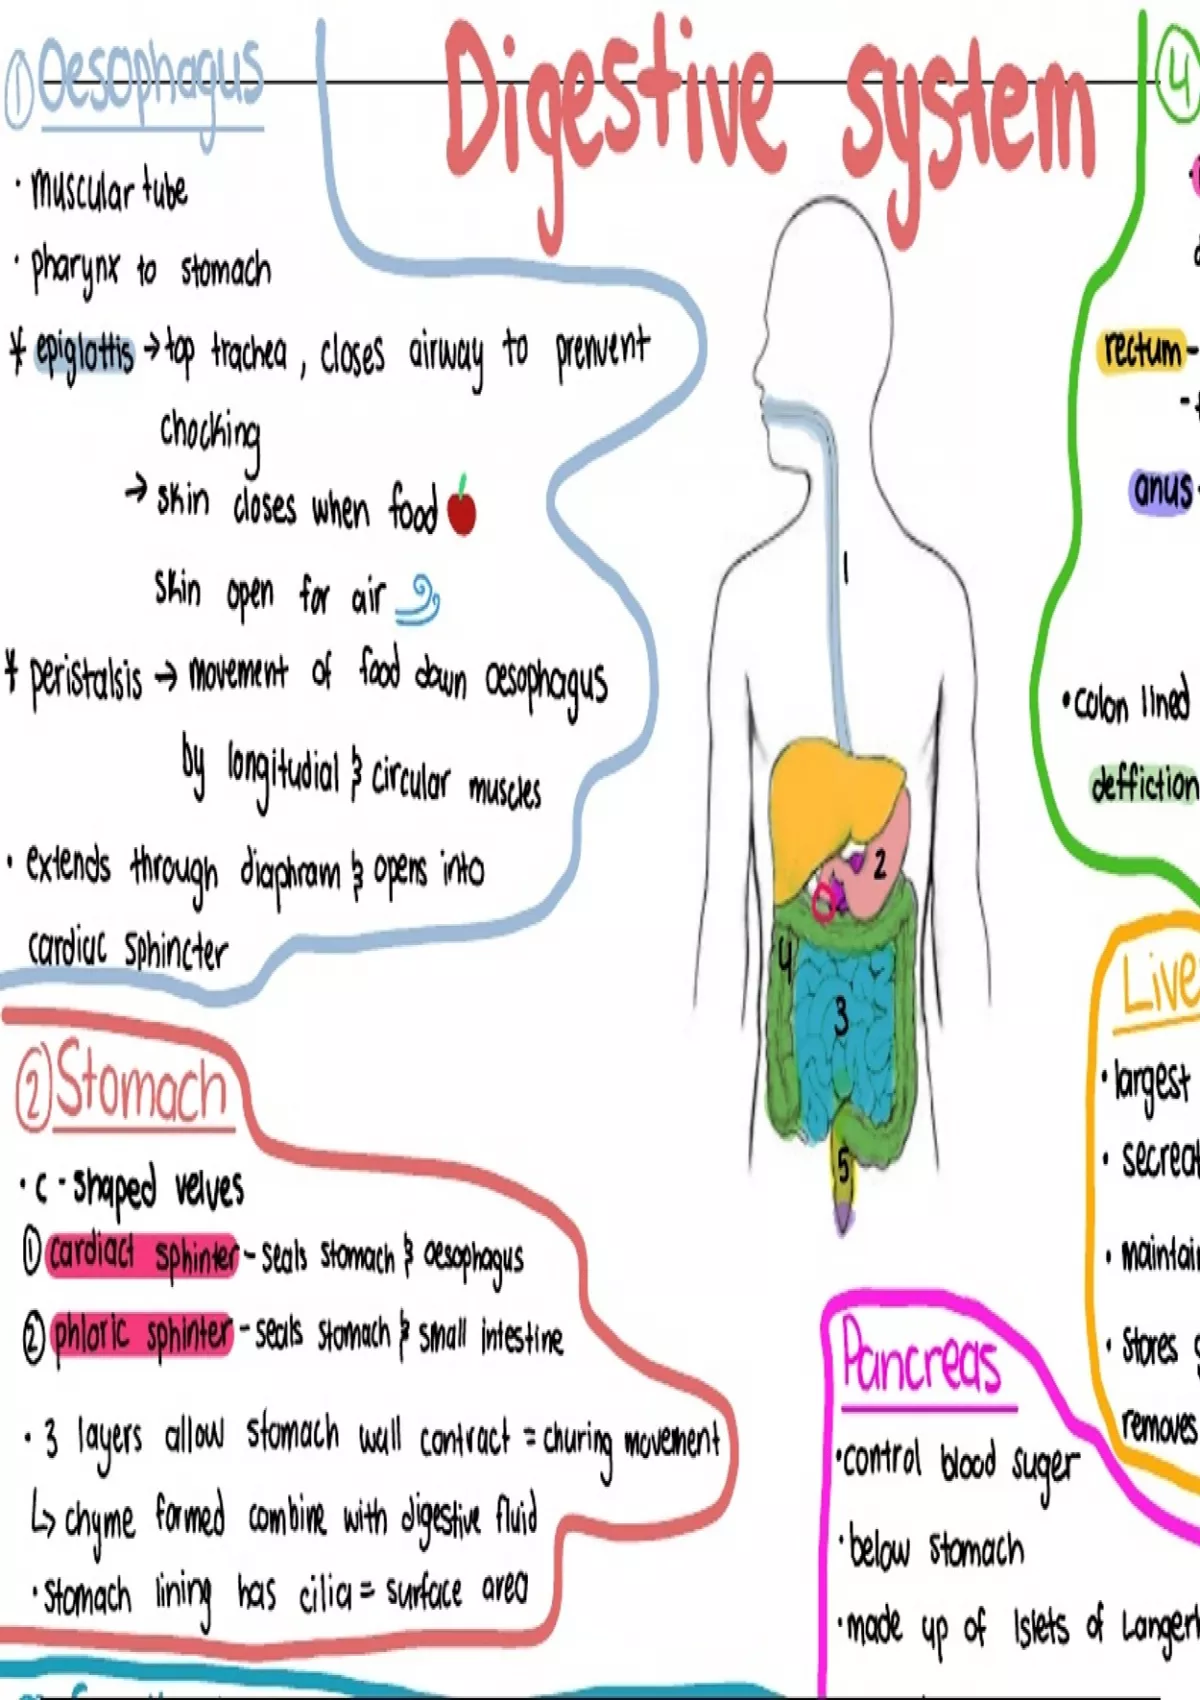 Digestive system
① Oesophagus
· muscular tube
· pharynx to stomach
* epiglottis → top trachea, closes airway to prenvent
chocking
→ skin closes when food
skin open for air
* peristalsis → movement of food down oesophagus
by longitudial & circular muscles
· extends through diaphram & opens into
cardiac sphincter
② Stomach
· c - shaped velves
① cardiact sphinter - seals stomach & oesophagus
② phloric sphinter - seals stomach & small intestine
· 3 layers allow stomach wall contract = churing movement
↳ chyme formed combine with digestive fluid
· stomach lining has cilia = surface area
1
2
4
3
5
④
rectum -
anus -
· colon lined
deffiction
Live
· largest
· secreat
· maintain
· stores g
removes
Pancreas
· control blood suger
· below stomach
· made up of Islets of Langerh